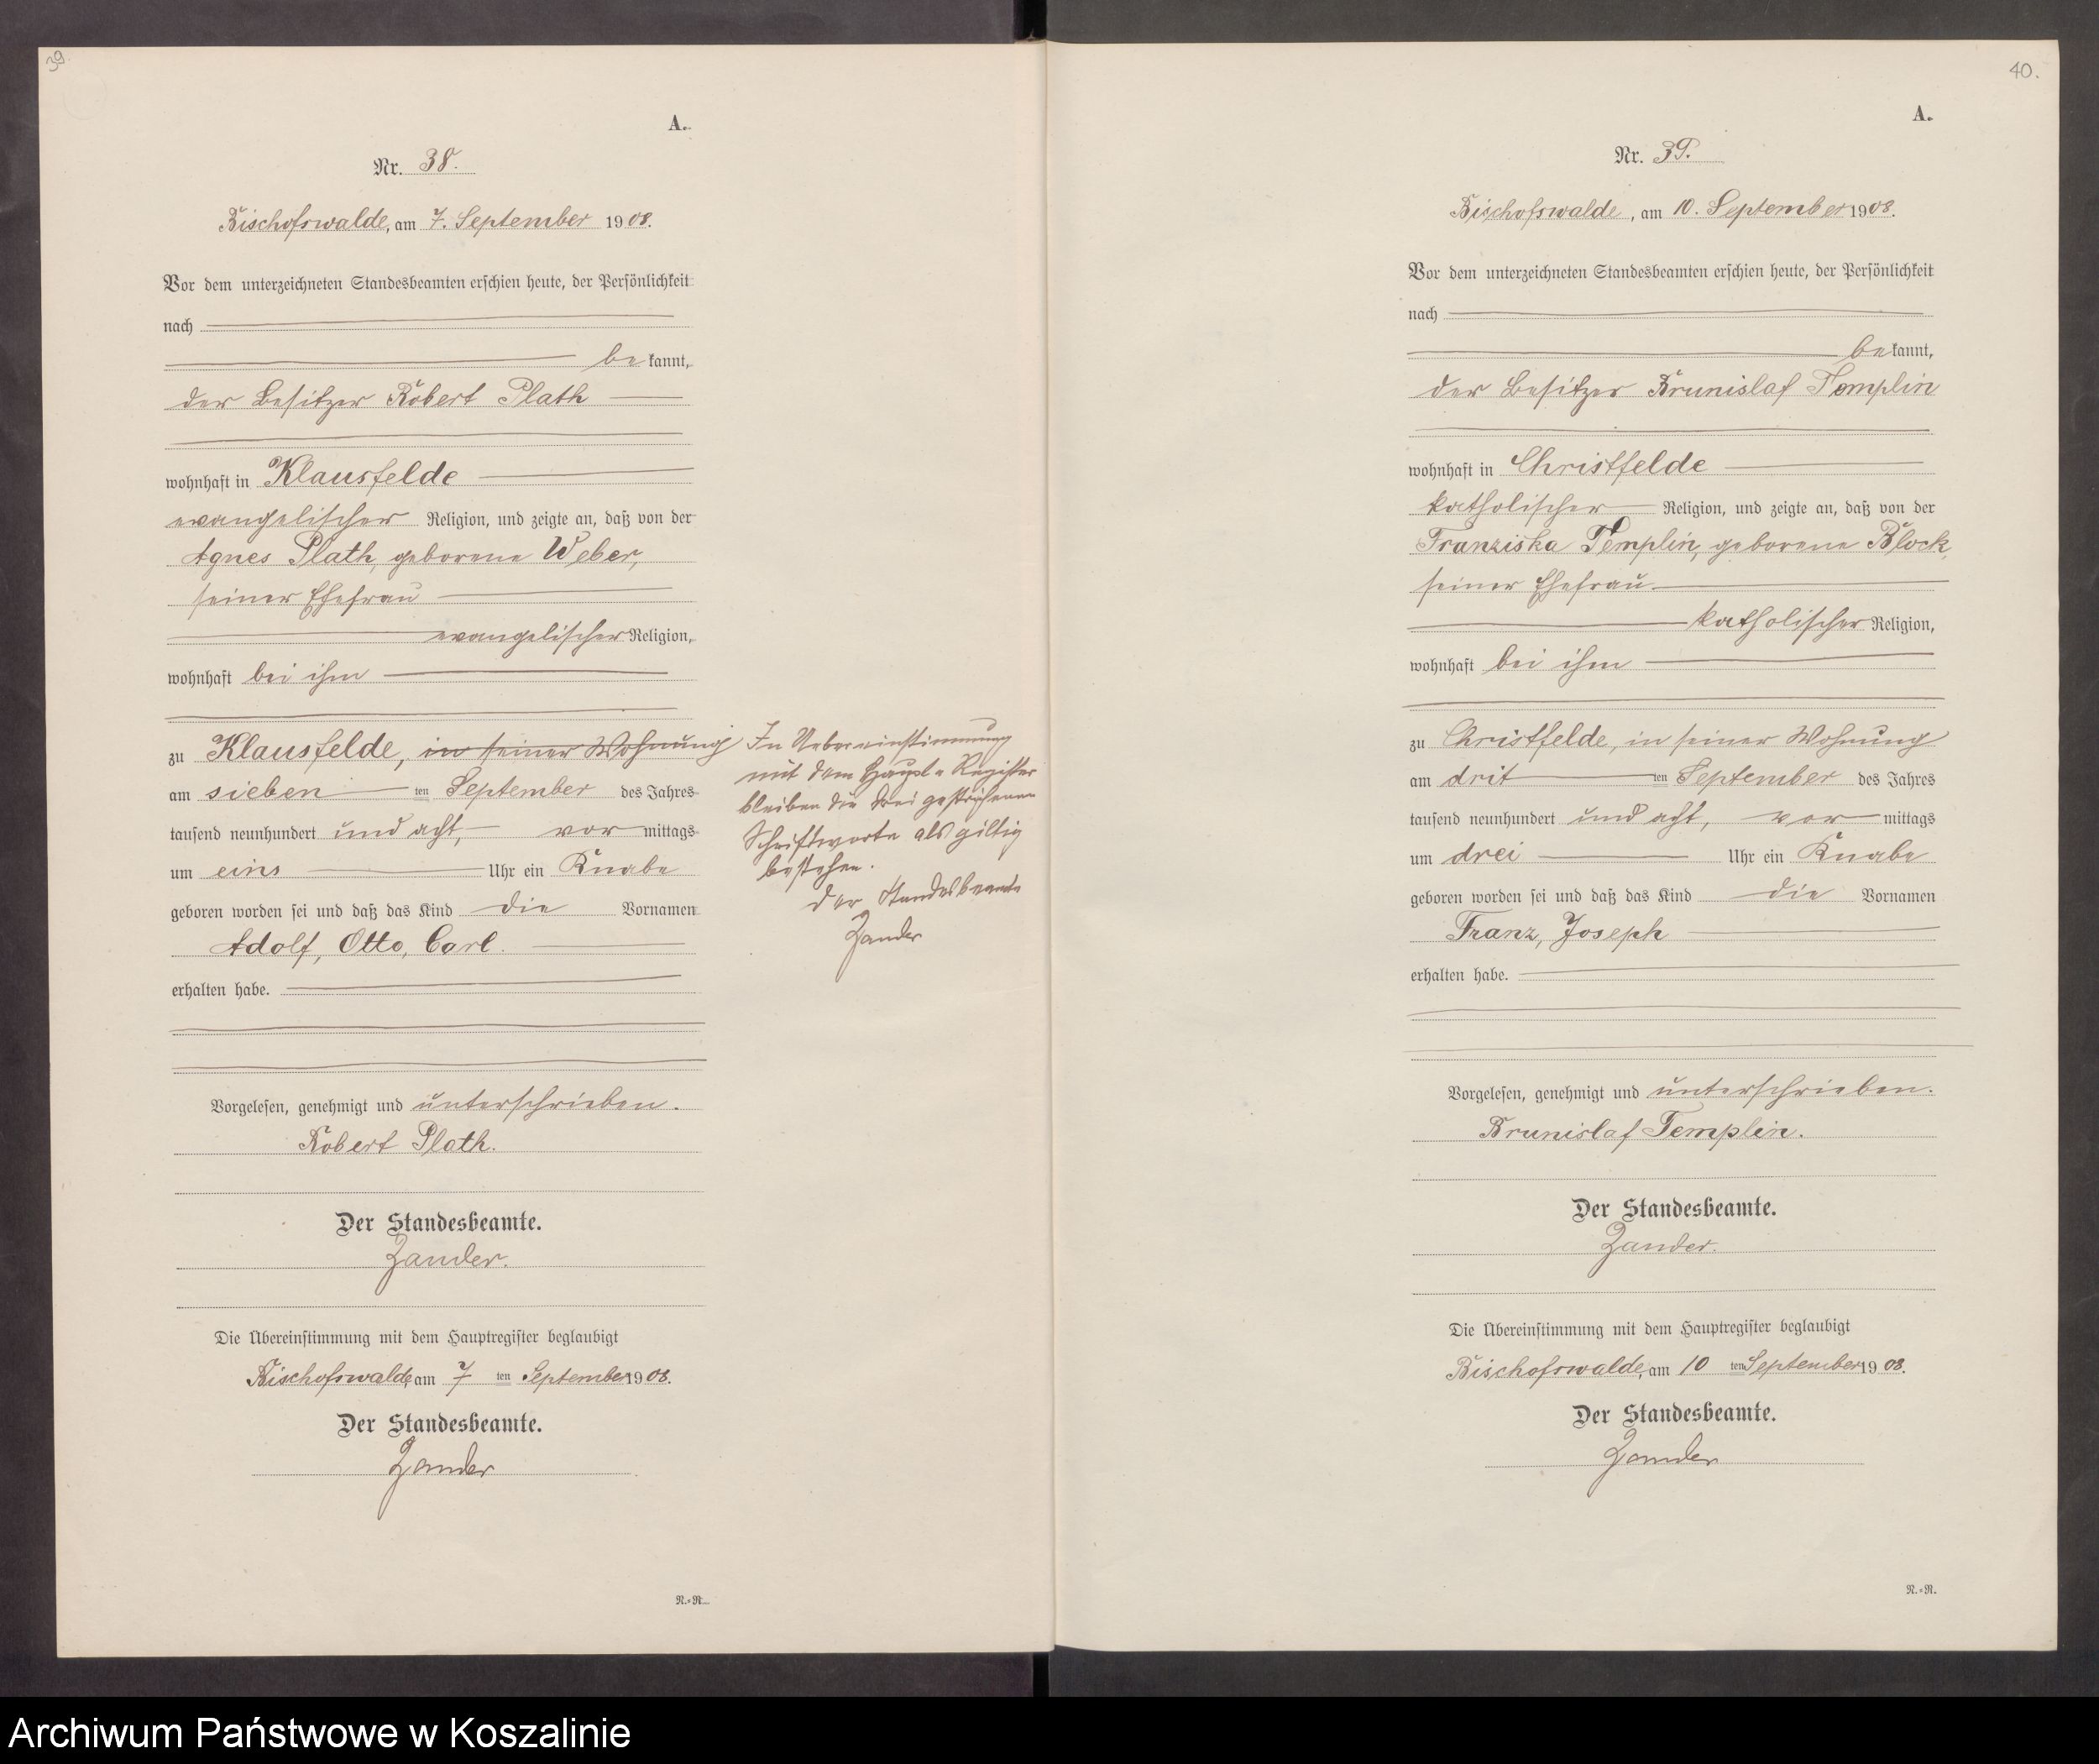 39.
A.
Nr. 38.
Bischofswalde, am 7. September 1908.
Vor dem unterzeichneten Standesbeamten erschien heute, der Persönlichkeit
nach
be kannt,
der Besitzer Robert Plath
wohnhaft in Klausfelde
evangelischer Religion, und zeigte an, daß von der
Agnes Plath, geborene Weber,
seiner Ehefrau
evangelischer Religion,
wohnhaft bei ihm
zu Klausfelde, in seiner Wohnung
am sieben ten September des Jahres
tausend neunhundert und acht, vor mittags
um eins Uhr ein Knabe
geboren worden sei und daß das Kind die Vornamen
Adolf, Otto, Carl.
erhalten habe.
Vorgelesen, genehmigt und unterschrieben.
Robert Plath.
Der Standesbeamte.
Zander.
Die Übereinstimmung mit dem Hauptregister beglaubigt
Bischofswalde, am 7 ten September 1908.
Der Standesbeamte.
Zander
N.=R.
In Uebereinstimmung
mit dem Haupt=Register
bleiben die drei gestrichenen
Schriftworte als giltig
bestehen.
Der Standesbeamte
Zander
40.
A.
Nr. 39.
Bischofswalde, am 10. September 1908.
Vor dem unterzeichneten Standesbeamten erschien heute, der Persönlichkeit
nach
be kannt,
der Besitzer Brunislaf Templin
wohnhaft in Christfelde
katholischer Religion, und zeigte an, daß von der
Franziska Templin, geborene Block,
seiner Ehefrau
katholischer Religion,
wohnhaft bei ihm
zu Christfelde, in seiner Wohnung
am drit ten September des Jahres
tausend neunhundert und acht, vor mittags
um drei Uhr ein Knabe
geboren worden sei und daß das Kind die Vornamen
Franz, Joseph
erhalten habe.
Vorgelesen, genehmigt und unterschrieben.
Brunislaf Templin.
Der Standesbeamte.
Zander.
Die Übereinstimmung mit dem Hauptregister beglaubigt
Bischofswalde, am 10 ten September 1908.
Der Standesbeamte.
Zander
N.=R.
Archiwum Państwowe w Koszalinie